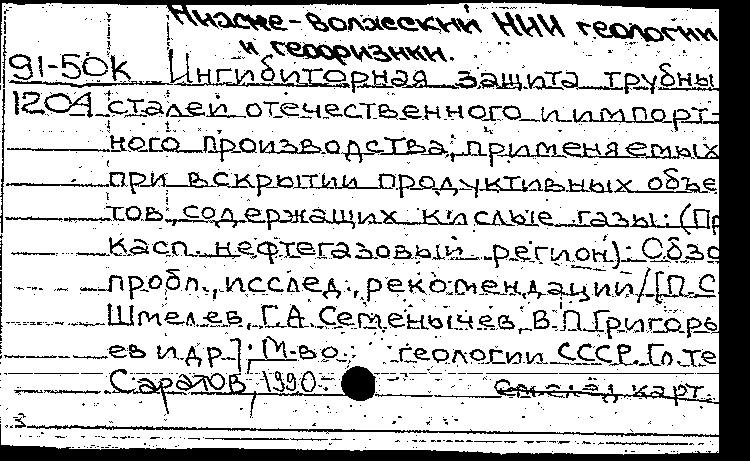 Нижне-Волжский НИИ геологии
и геофизики.
91-50к Ингибиторная защита трубны
1204 сталей отечественного и импорт-
ного производства, применяемых
при вскрытии продуктивных объе
тов, содержащих кислые газы: (Пр
касп. нефтегазовый регион): Обзо
пробл., исслед., рекомендации/[П.С
Шмелев, Г.А. Семенычев, В.П. Григорь
ев и др.]; М-во геологии СССР. Гл. те
Саратов, 1990.- след. карт.
3